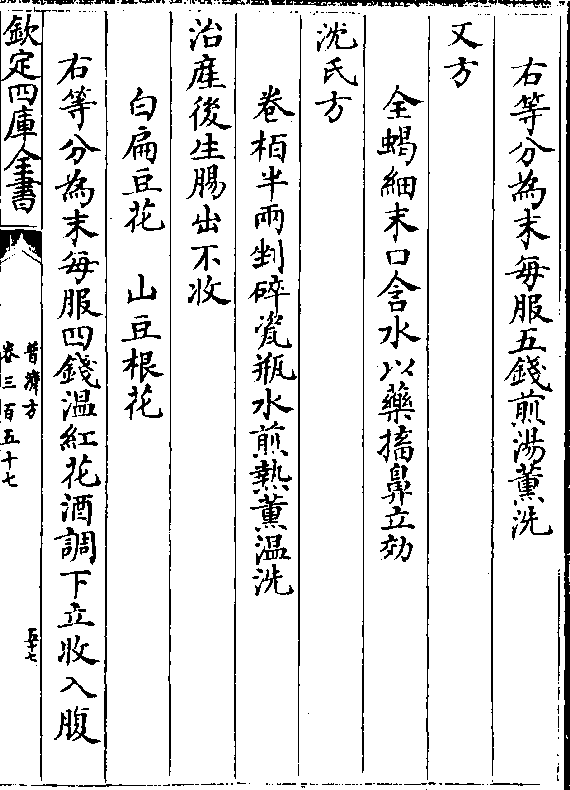 右等分為末每服五錢煎湯薰洗
又方
全蝎細末口含水以藥搐鼻立効
沈氏方
卷栢半兩剉碎瓷瓶水煎熱薰温洗
治産後生腸出不收
白扁豆花　山豆根花
右等分為末每服四錢温紅花酒調下立收入腹
欽定四庫全書
普濟方
卷三百五十七
五十七